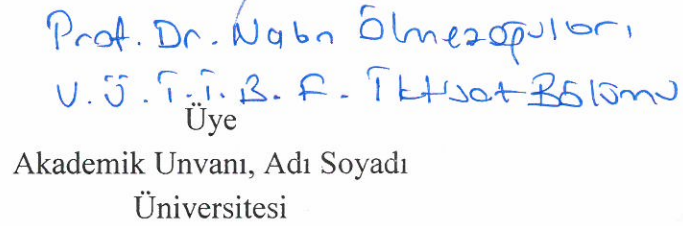 Prof. Dr. Nalan Ölmezoğulları
U.Ü.İ.İ.B.F. İktisat Bölümü
Üye
Akademik Unvanı, Adı Soyadı
Üniversitesi